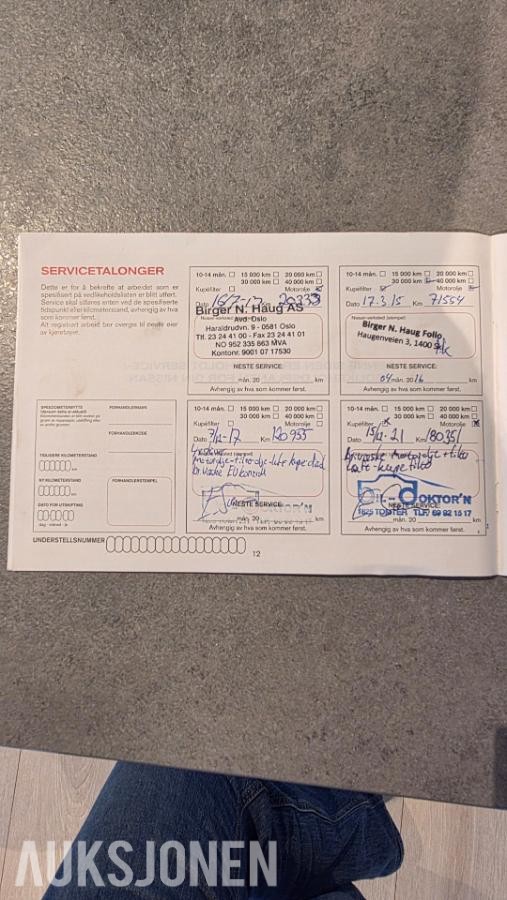 SERVICETALONGER
Dette er for å bekrefte at arbeidet som er
spesifisert på vedlikeholdslisten er blitt utført.
Service skal utføres enten ved de spesifiserte
tidspunkt eller kilometerstand, avhengig av hva
som kommer først.
Alt registrert arbeid bør overgis til neste eier
av kjøretøyet.
10-14 mån. 15 000 km 20 000 km
30 000 km 40 000 km
Kupéfilter Motorolje
Dato 16/7-12 Km 20233
Birger N. Haug AS
Avd. Oslo
Haraldrudvn. 9 - 0581 Oslo
Tlf. 23 24 41 00 - Fax 23 24 41 01
NO 952 335 663 MVA
Kontonr. 9001 07 17530
NESTE SERVICE:
mån. 20 km
Avhengig av hva som kommer først.
10-14 mån. 15 000 km 20 000 km
30 000 km 40 000 km
Kupéfilter Motorolje
Dato 17.3.15 Km 71554
Nissan-verksted (stempel)
Birger N. Haug Follo
Haugenveien 3, 1400 Ski
NESTE SERVICE:
04 mån. 2016 km
Avhengig av hva som kommer først.
SPEEDOMETERBYTTE
FORHANDLERNAVN
FORHANDLERKODE
TIDLIGERE KILOMETERSTAND
km
NY KILOMETERSTAND
km
FORHANDLERSTEMPEL
DATO FOR UTSKIFTING
dag - måned - år
10-14 mån. 15 000 km 20 000 km
30 000 km 40 000 km
Kupéfilter Motorolje
Dato 9/2-17 Km 120955
EU kontroll
NESTE SERVICE:
mån. 20 km
Avhengig av hva som kommer først.
10-14 mån. 15 000 km 20 000 km
30 000 km 40 000 km
Kupéfilter Motorolje
Dato 15/12-21 Km 180351
Br.væske Motorolje + filter
DOKTOR'N
NESTE SERVICE:
1825 TOMTER TLF. 69 92 15 17
mån. 20 km
Avhengig av hva som kommer først.
UNDERSTELLSNUMMER
12
AUKSJONEN